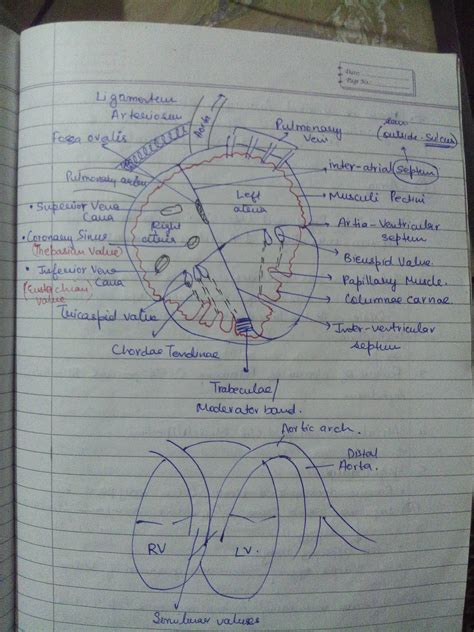 Ligamentum
Arteriosum
Aorta
Pulmonary
Vein
(outside-Sulcus)
Fossa ovalis
inter-atrial septum
Pulmonary artery
Left
atria
Musculi Pectini
• Superior Vena
Cava
Right
atria
Artia-Ventricular
septum
• Coronary Sinus
(Thebasian Valve)
Bicuspid Valve
• Inferior Vena
Cava
(Eustachian)
valve
Papillary Muscle.
Columnae carnae.
Tricuspid valve
Inter-ventricular
septum
Chordae Tendinae
Trabeculae/
Moderator band.
Aortic arch.
Distal
Aorta.
RV
LV.
Semilunar valves